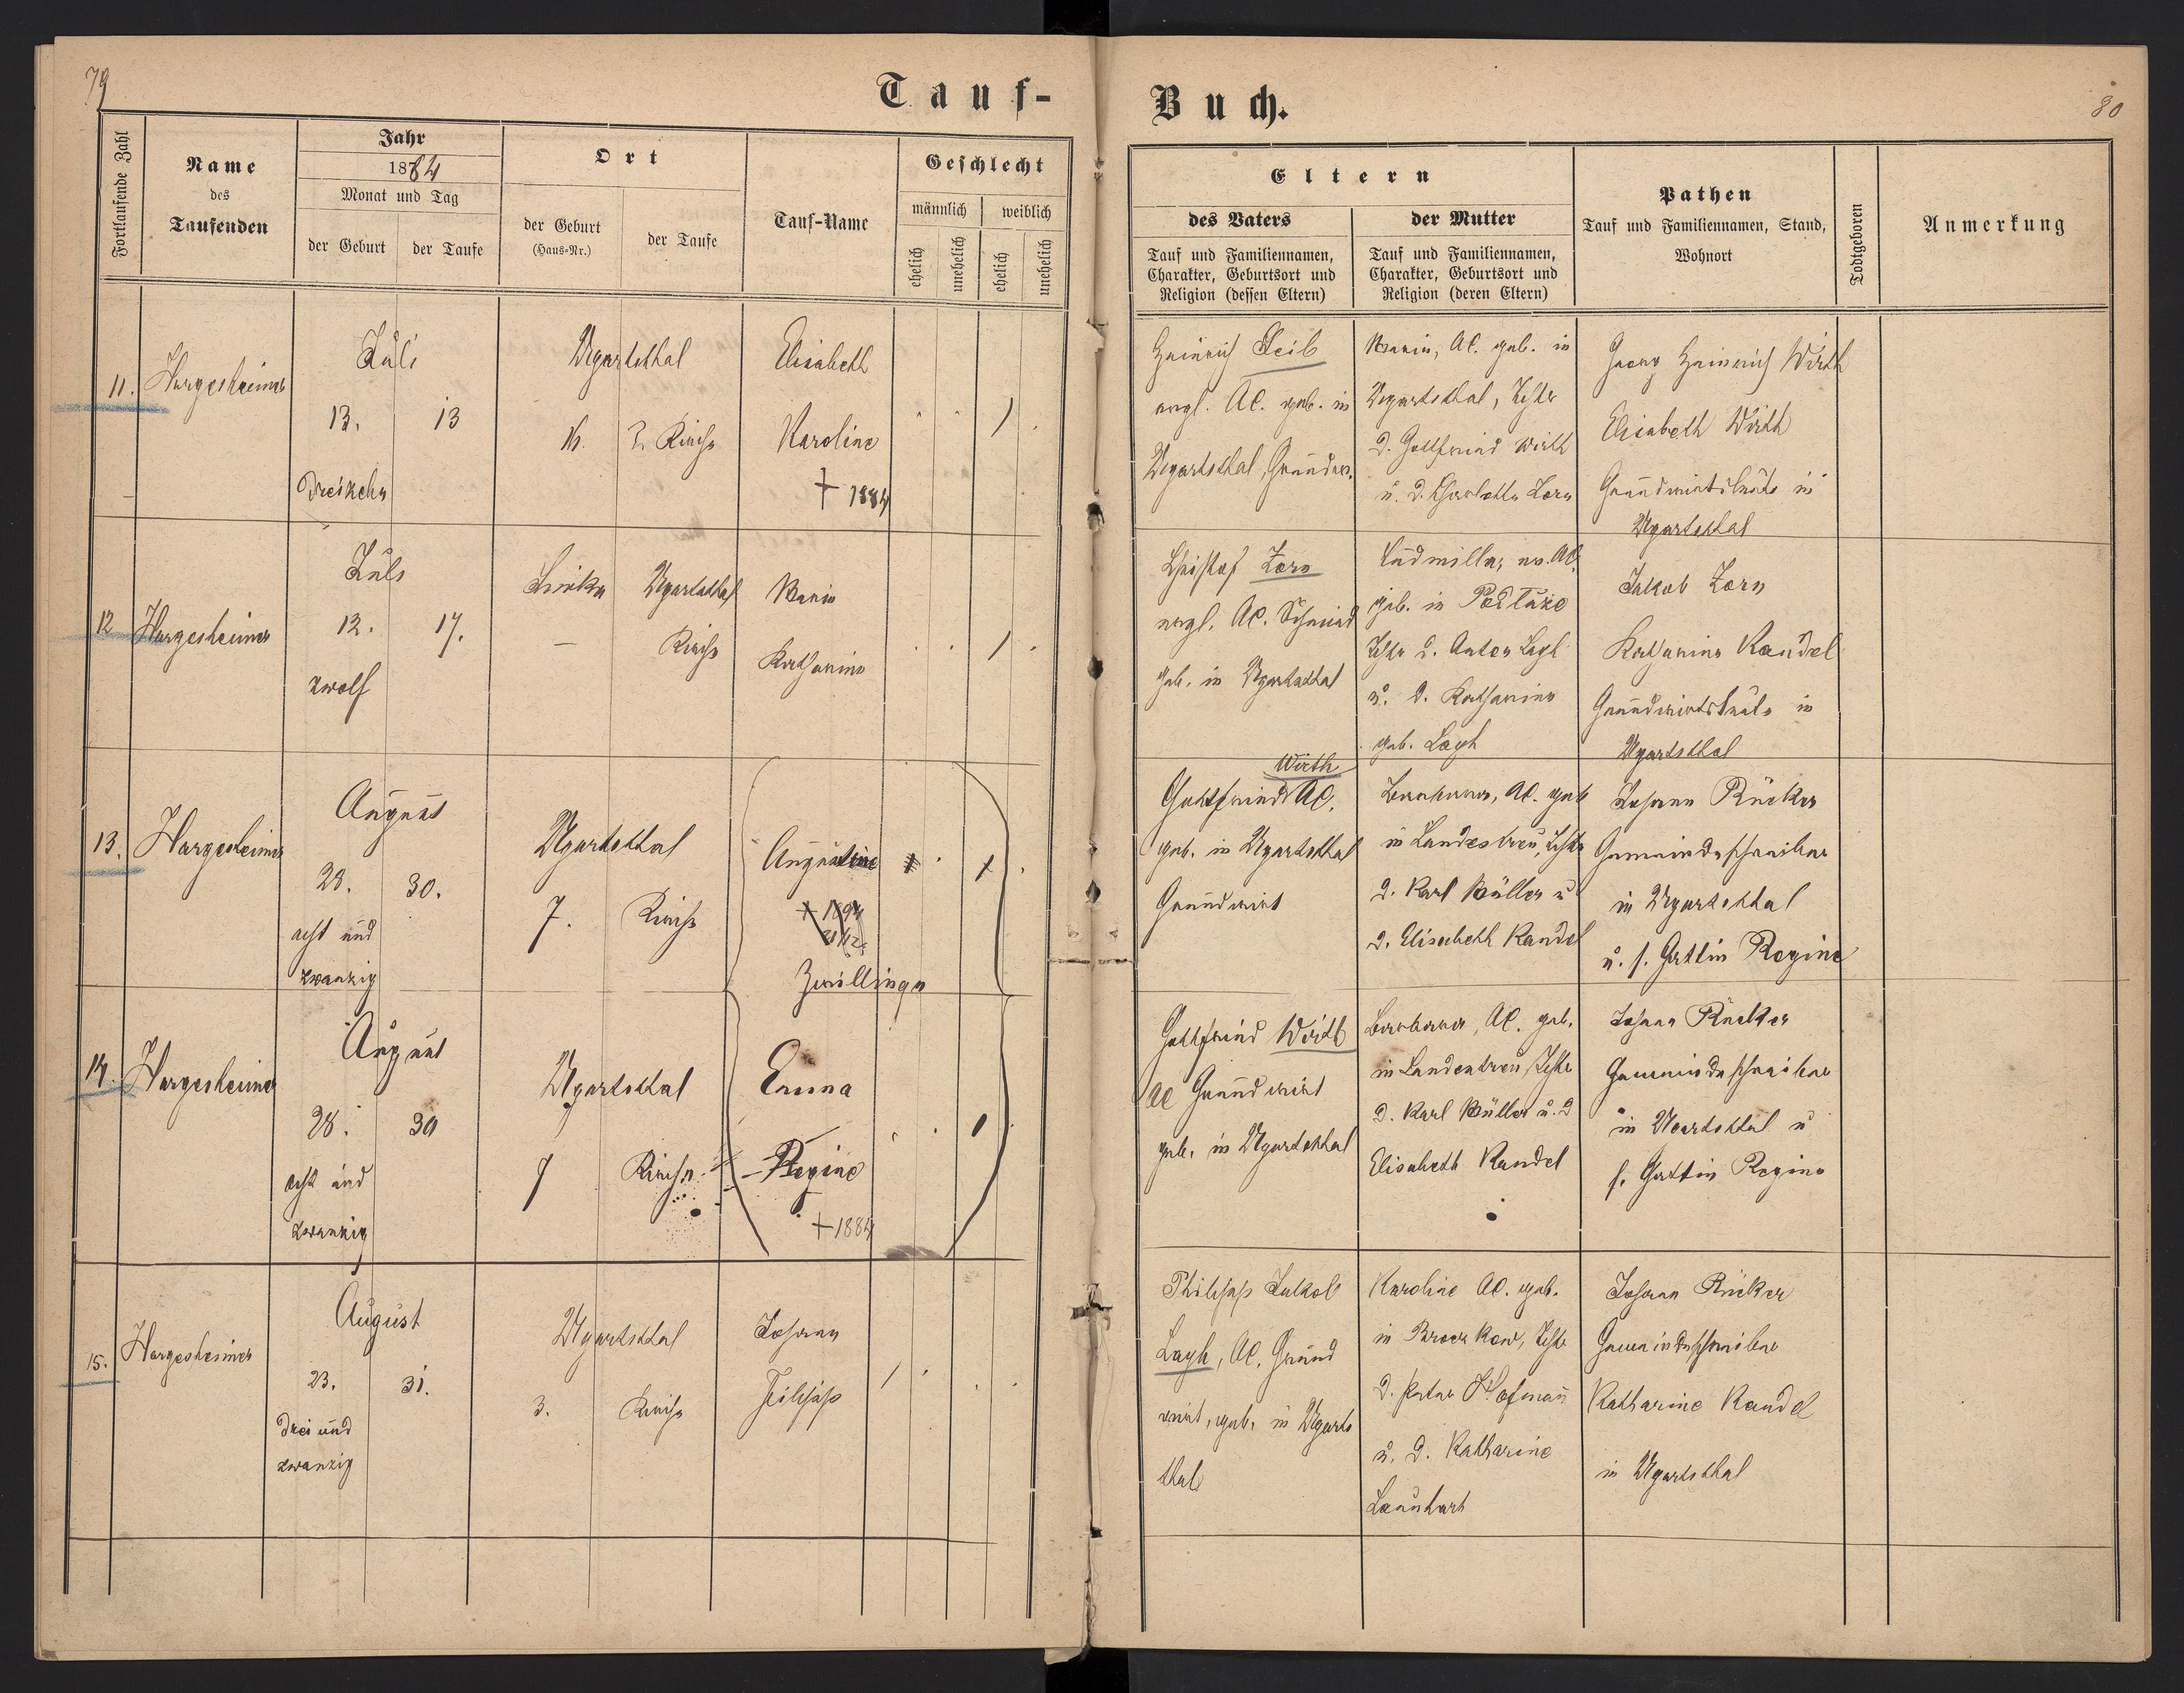 79
Tauf-
Fortlaufende Zahl
Name
des
Taufenden
Jahr
1884
Monat und Tag
der Geburt
der Taufe
Ort
der Geburt
(Haus-Nr.)
der Taufe
Tauf-Name
Geschlecht
männlich
weiblich
ehelich
unehelich
ehelich
unehelich
11.
Hargesheimer
Juli
13.
13
Dreizehn
Ugartsthal
16.
Kirche
Elisabeth
Karoline
† 1884
12
Hargesheimer
Juli
12.
17.
zwölf
Ugartsthal
Kirche
Maria
Katharina
13.
Hargesheimer
August
28.
30.
acht und
zwanzig
Ugartsthal
7.
Kirche
Augustine
Zwillinge
14.
Hargesheimer
August
28.
30
acht und
zwanzig
Ugartsthal
7
Kirche
Emma
Regine
† 1884
15.
Hargesheimer
August
23.
31.
Drei und
zwanzig
Ugartsthal
3.
Kirche
Johann
Filipp
Buch.
80
Eltern
des Vaters
Tauf und Familiennamen,
Charakter, Geburtsort und
Religion (dessen Eltern)
der Mutter
Tauf und Familiennamen,
Charakter, Geburtsort und
Religion (deren Eltern)
Pathen
Tauf und Familiennamen, Stand,
Wohnort
Todtgeboren
Anmerkung
Heinrich Leib
evgl. AC. geb. in
Ugartsthal, Grundw.
Maria, AC. geb. in
Ugartsthal, Tochter
d. Gottfried Wirth
u. d. Charlotte Zorn
Georg Heinrich Wirth
Elisabeth Wirth
Grundwirtsleute in
Ugartsthal
Christof Zorn
evgl. AC. Schmied
geb. in Ugartsthal
Ludmilla, ev. AC.
geb. in
d. Anton
u. d. Katharina
geb. Layh
Jakob Zorn
Katharina Kandel
Grundwirtsleute in
Ugartsthal
Wirth
Gottfried AC.
geb. in Ugartsthal
Grundwirt
Barbara, AC. geb
in Landestreu, Tochter
d. Karl Müller u
d. Elisabeth Kandel
Johann Rücker
Gemeindeschreiber
in Ugartsthal
u. s. Gattin Regine
Gottfried Wirth
AC Grundwirt
geb. in Ugartsthal
Barbara, AC. geb.
in Landestreu, Tochter
d. Karl Müller u. d
Elisabeth Kandel
Johann Rücker
Gemeindeschreiber
in Ugartsthal u
s. Gattin Regine
Philipp Jakob
Layh, AC. Grund
wirt, geb. in Ugarts
thal
Karoline AC. geb.
in
d. Peter Hofmann
u. d. Katharine
Launhart
Johann Rücker
Gemeindeschreiber
Katharine Kandel
in Ugartsthal